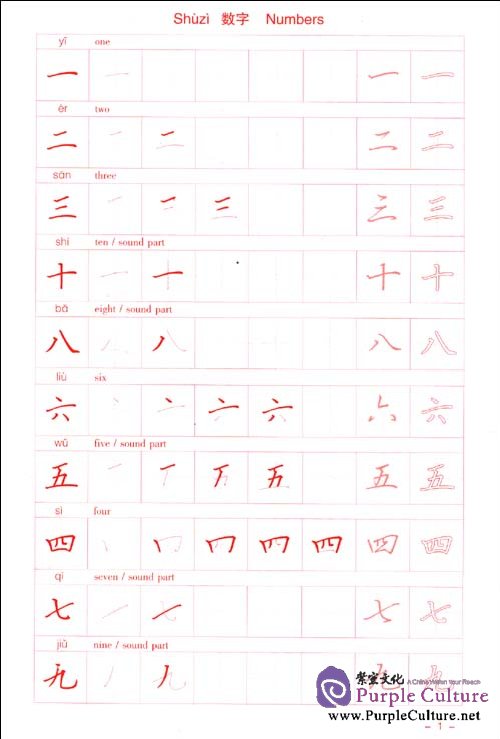 Shùzì 数字 Numbers
yī one
一 一 一 一
èr two
二 一 二 二 二
sān three
三 一 二 三 三 三
shí ten / sound part
十 一 十 十 十
bā eight / sound part
八 八 八 八
liù six
六 六 六 六
wǔ five / sound part
五 五 五
sì four
四 四 四
qī seven / sound part
七 七 七 七
jiǔ nine / sound part
九 九 九
紫宣文化 A China Vision Your Reach
Purple Culture
www.PurpleCulture.net
– 1 –